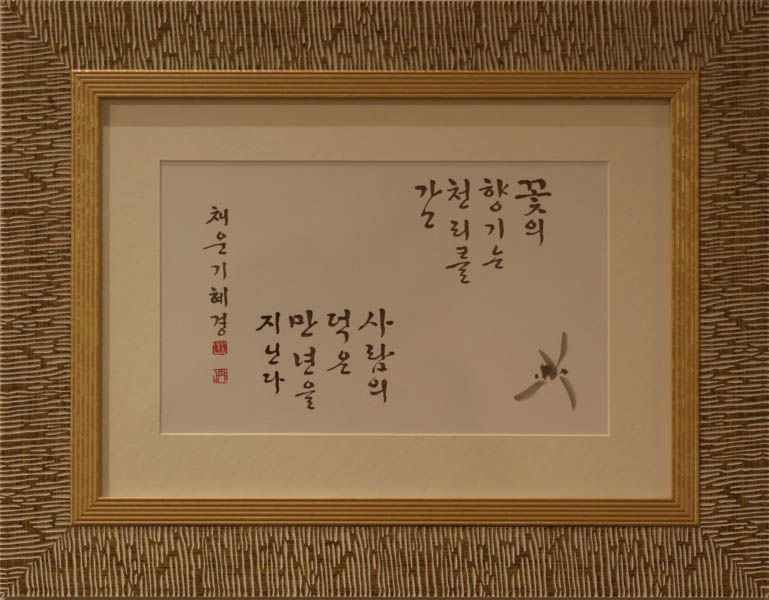 꽃의
향기는
천리를
간
사람의
덕은
만년을
지닌다
채운기혜경